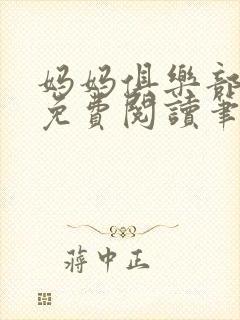 妈妈俱樂部
免費閱讀筆
蔣中正